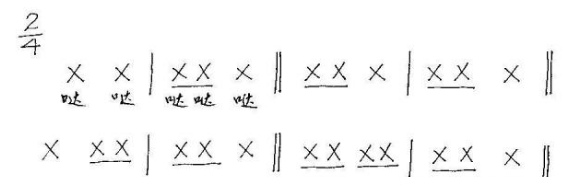 2/4
X X | X X X || X X X | X X X ||
哒 哒 哒 哒 哒
X X X | X X X || X X X X | X X X ||